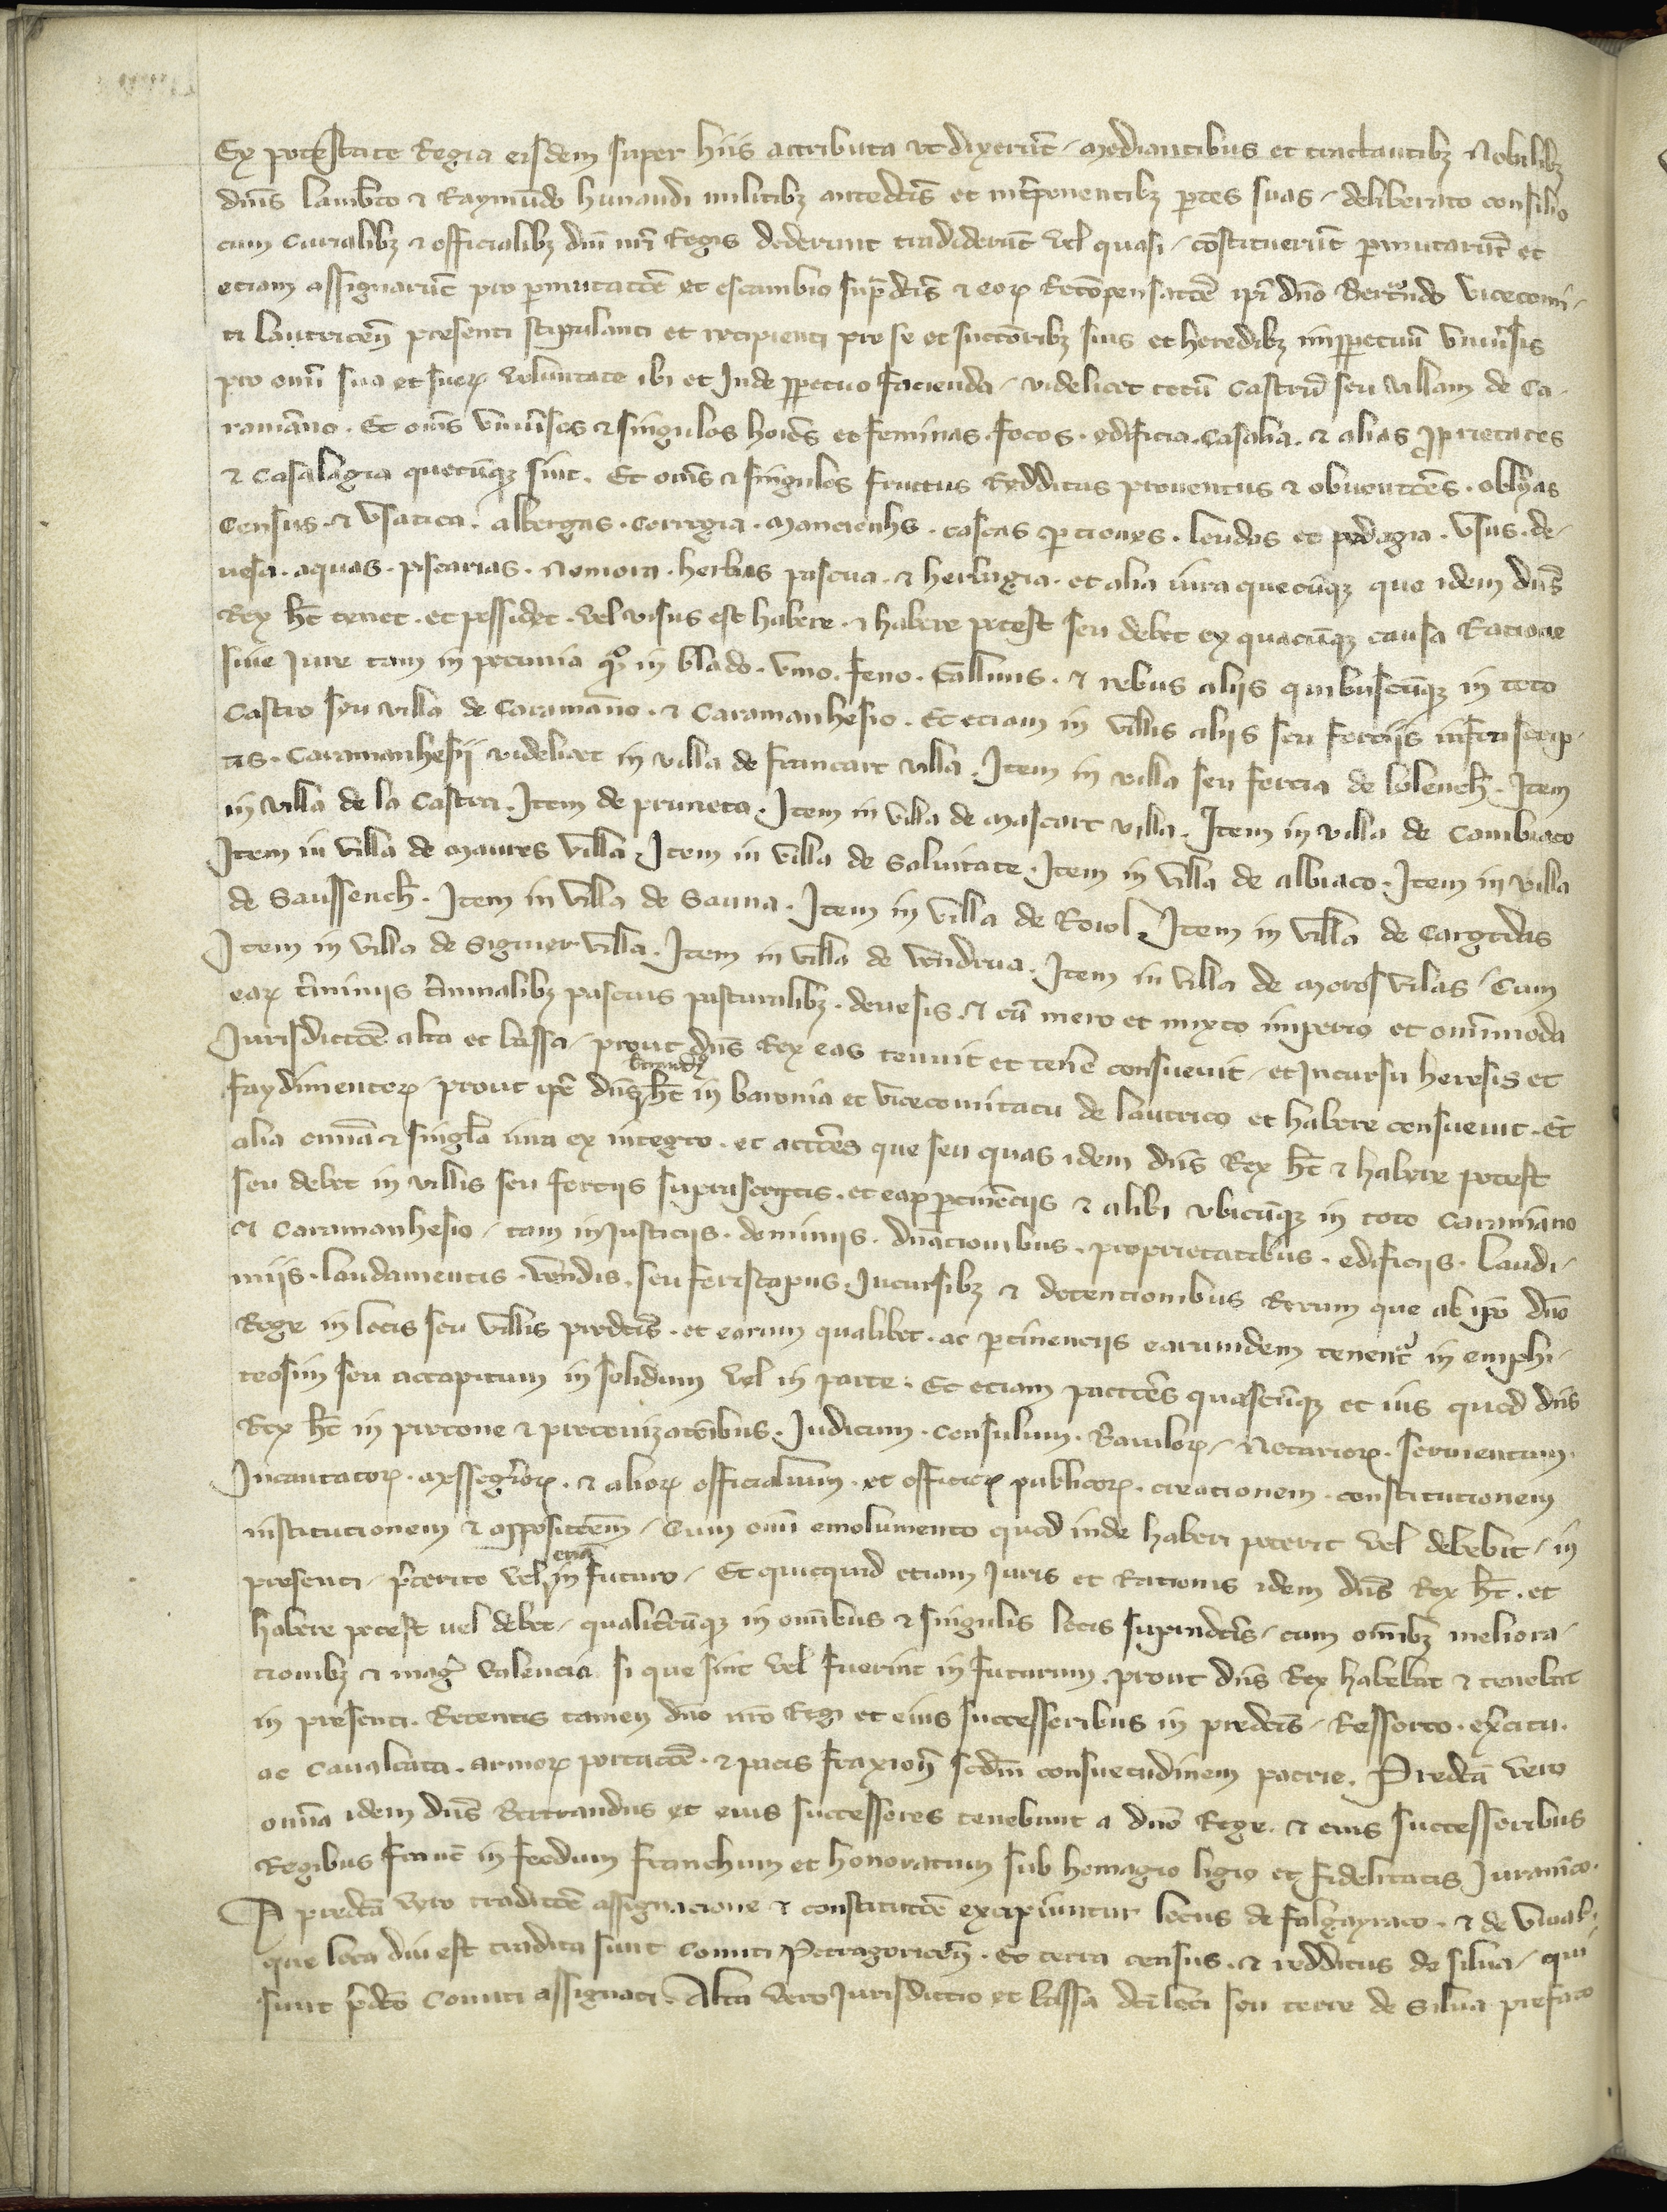 Ex potestate Regia eisdem super hiis attributa vt dixerūt / mediantibus et tractantibꝫ Nobilibꝫ
dnīs lamb̄to ⁊ Raymūdo hunaudi militibꝫ antedc̄is et int̄ponentibꝫ ꝑtes suas / deliberato consilio
cum curialibꝫ ⁊ officialibꝫ dn̄i nr̄i Regis dederunt tradiderūt vel quasi / cōstituerūt ꝑmutarūt et
etiam assignarūt pro ꝑmutatōe et escambio sup̄dc̄is ⁊ eoꝝ Recōpensatōe ip̄i dn̄o Bertrando vicecomi-
ti lautricen̄ presenti stipulanti et recipienti pro se et succōribꝫ suis et heredibꝫ inꝑpetuū vniūsis
pro om̄i sua et suoꝝ volūntate ibi et Inde ꝑpetuo facienda / videlicet totū Castrū seu villam de Ca-
ramāno . Et om̄s vniūsos ⁊ singulos hoīes et feminas . focos . edificia . casalia . ⁊ alias ꝓprietates
⁊ casalagia quecūqꝫ sint . Et om̄s ⁊ singulos fructus Redditus prouentus ⁊ obuentōes . oblyas
Census . ⁊ vsatica . albergas . corregia . manciouhs . tascas ꝑtiones . leudas et pedagia . vsus . de-
uesa . aquas . piscarias . nemora . herbas pascua . ⁊ herbagia . et alia iura quecūqꝫ que idem dn̄s
Rex h̄t tenet . et possidet . vel visus est habere . ⁊ habere potest seu debet ex quacūqꝫ causa Ratione
siue Jure tam in pecunia qͣ in blado . vino . feno . Gallinis . ⁊ rebus aliis quibuscūqꝫ in toto
Castro seu villa de Caramāno . ⁊ Caramanhesio . Et etiam in villis aliis seu forciis infrascrip-
tis . Caramanhesii videlicet in villa de francart villa . Item in villa seu forcia de lolench̄ . Item
in villa de la Castra . Item de pruneto . Item in villa de mascart villa . Item in villa de Cambiaco
Item in villa de maures villa . Item in villa de Saluitate . Item in villa de albiaco . Item in villa
de Saussench̄ . Item in villa de Sauna . Item in villa de Roiol . Item in villa de
Item in villa de Siguier villa . Item in villa de vendrua . Item in villa de moros vilas / Cum
eaꝝ t̄miniis t̄minalibꝫ pascuis pasturalibꝫ . deuesis . ⁊ cū mero et mixto imperio et om̄imoda
Jurisdictōe alta et bassa / prout dn̄s Rex eas tenuit et tenē consueuit / et Incursu heresis et
faydimentoꝝ / prout ip̄e dn̄s b̄trand⁹ h̄t in baronia et vicecomitatu de lautrico et habere consueuit . Et
alia om̄ia ⁊ singl̄a iura ex integro . et actōes que seu quas idem dn̄s Rex h̄t ⁊ habere potest
seu debet in villis seu forciis suprascriptis . et eaꝝ ꝑtinēciis ⁊ alibi vbicūqꝫ in toto Caramāno
⁊ Caramanhesio / tam in Justiciis . dominiis . dn̄acionibus . proprietatibus . edificiis . laudi-
miis . laudamentis . vēndis . seu foriscapiis . Incursibꝫ ⁊ detencionibus Rerum que ab ip̄o dn̄o
Rege in locis seu villis predc̄is . et earum qualibet . ac ꝑtinenciis earumdem tenent̄ in emphi-
teosim seu accapitum in solidum vel in parte . Et etiam pactōes quascūqꝫ et ius quod dn̄s
Rex h̄t in precone ⁊ preconizatōibus . Judicum . Consulum . Bauiloꝝ / Notarioꝝ . seruientum .
Incantatoꝝ . messegͬioꝝ . ⁊ alioꝝ officialium . et officioꝝ publicoꝝ . creationem . constitutionem
institutionem ⁊ appositōem / Cum om̄i emolumento quod inde haberi poterit vel debebit / in
presenti / p̄terito vel etiā in futuro / Et quicquid etiam Juris et Rationis idem dn̄s Rex h̄t . et
habere potest uel debet / qualit̄cūqꝫ in om̄ibus ⁊ singulis locis supradc̄is / cum om̄ibꝫ meliora-
cionibꝫ ⁊ maḡ valencia si que sint vel fuerint in futurum . prout dn̄s Rex habebat ⁊ tenebat
in presenti . Retentis tamen dn̄o nr̄o Regi et eius successoribus in predc̄is / Ressorto . ex̄citu .
ac Caualcata . armoꝝ portatōe . ⁊ pacis fraxion̄ scd̄m consuetudinem patrie . Predc̄a vero
om̄ia idem dn̄s Bertrandus et eius successores tenebunt a dn̄o Rege . ⁊ eius successoribus
Regibus franc̄ in feodum franchum et honoratum sub homagio ligio et fidelitatis Juram̄to .
A predc̄a vero traditōe assignacione ⁊ constitutōe excipiuntur locus de falgayraco . ⁊ de vioal.
que loca diu est tradita sunt Comiti Petragoricen̄ . Et terra census . ⁊ redditus de silua / qui
sunt p̄dc̄o Comiti assignati . Alta vero Jurisdictio et bassa dc̄i loci seu terre de Silua prefato